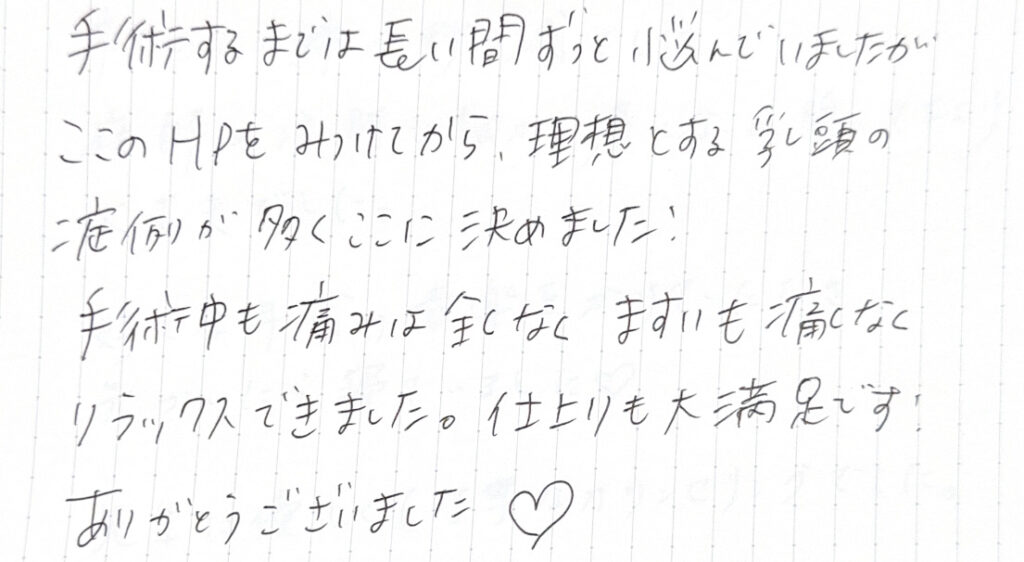 手術するまでは長い間ずっと悩んでいましたが
ここのHPをみつけてから、理想とする乳頭の
症例が多くここに決めました!
手術中も痛みは全くなく ますいも痛くなく
リラックスできました。仕上りも大満足です!
ありがとうございました♡